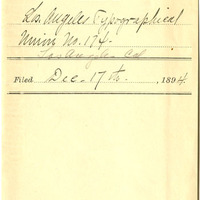 Los Angeles Typographical
Union No. 174.
Los Angeles Cal
Filed Dec. 17th, 1894